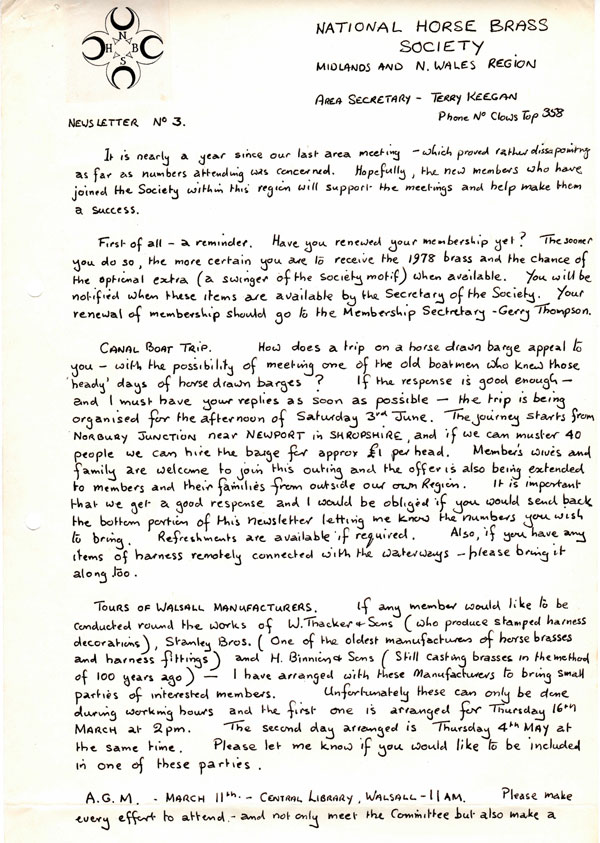 N
H B
S
NATIONAL HORSE BRASS
SOCIETY
MIDLANDS AND N. WALES REGION
AREA SECRETARY - TERRY KEEGAN
Phone No Clows Top 358
NEWSLETTER No 3.
It is nearly a year since our last area meeting - which proved rather dissapointing
as far as numbers attending was concerned. Hopefully, the new members who have
joined the Society within this region will support the meetings and help make them
a success.
First of all - a reminder. Have you renewed your membership yet? The sooner
you do so, the more certain you are to receive the 1978 brass and the chance of
the optional extra (a swinger of the society motif) when available. You will be
notified when these items are available by the Secretary of the Society. Your
renewal of membership should go to the Membership Secretary - Gerry Thompson.
CANAL BOAT TRIP. How does a trip on a horse drawn barge appeal to
you - with the possibility of meeting one of the old boatmen who knew those
'heady' days of horse drawn barges? If the response is good enough -
and I must have your replies as soon as possible - the trip is being
organised for the afternoon of Saturday 3rd June. The journey starts from
NORBURY JUNCTION near NEWPORT in SHROPSHIRE, and if we can muster 40
people we can hire the barge for approx £1 per head. Member's wives and
family are welcome to join this outing and the offer is also being extended
to members and their families from outside our own Region. It is important
that we get a good response and I would be obliged if you would send back
the bottom portion of this newsletter letting me know the numbers you wish
to bring. Refreshments are available if required. Also, if you have any
items of harness remotely connected with the waterways - please bring it
along too.
TOURS OF WALSALL MANUFACTURERS. If any member would like to be
conducted round the works of W. Thacker & Sons (who produce stamped harness
decorations), Stanley Bros. (One of the oldest manufacturers of horse brasses
and harness fittings) and H. Binnion & Sons (Still casting brasses in the method
of 100 years ago) - I have arranged with these Manufacturers to bring small
parties of interested members. Unfortunately these can only be done
during working hours and the first one is arranged for Thursday 16th
MARCH at 2pm. The second day arranged is Thursday 4th MAY at
the same time. Please let me know if you would like to be included
in one of these parties.
A.G.M. - MARCH 11th. - CENTRAL LIBRARY, WALSALL - 11 AM. Please make
every effort to attend - and not only meet the Committee but also make a